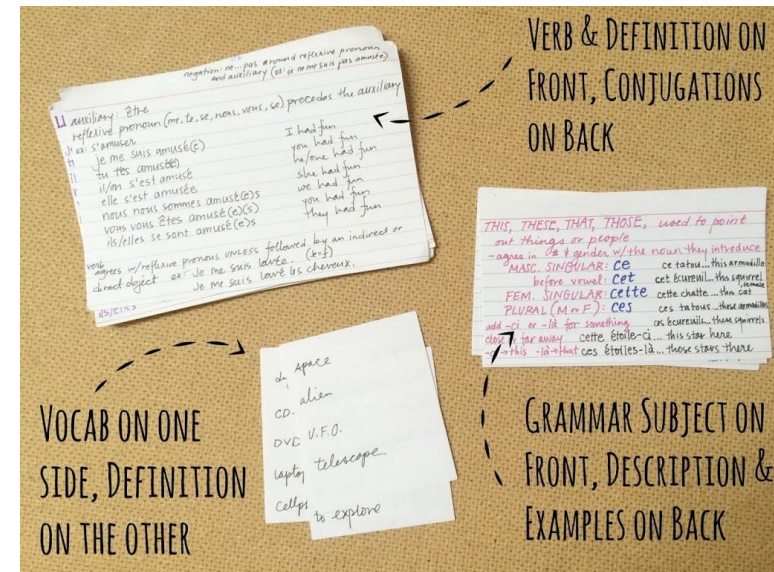 VERB & DEFINITION ON
FRONT, CONJUGATIONS
ON BACK
negation: ne...pas around reflexive pronoun
and auxiliary (ex: je ne me suis pas amusée)
auxiliary: être
reflexive pronoun (me, te, se, nous, vous, se) precedes the auxiliary
ex: s'amuser
je me suis amusé(e) I had fun
tu t'es amusé(e) you had fun
il/on s'est amusé he/one had fun
elle s'est amusée she had fun
nous nous sommes amusé(e)s we had fun
vous vous êtes amusé(e)(s) you had fun
ils/elles se sont amusé(e)s they had fun
verb
agrees w/reflexive pronous UNLESS followed by an indirect or
direct object ex: Je me suis lavée.
Je me suis lavé les cheveux.
THIS, THESE, THAT, THOSE, used to point
out things or people
-agree in # & gender w/the noun they introduce
MASC. SINGULAR: ce ce tatou...this armadillo
before vowel: cet cet écureuil...this squirrel
FEM. SINGULAR: cette cette chatte...this female cat
PLURAL (M or F): ces ces tatous...these armadillos
add -ci or -là for something ces écureuils...these squirrels
close far away cette étoile-ci...this star here
-ci→this -là→that ces étoiles-là...those stars there
space
CD. alien
DVD U.F.O.
laptop telescope
cellph
to explore
VOCAB ON ONE
SIDE, DEFINITION
ON THE OTHER
GRAMMAR SUBJECT ON
FRONT, DESCRIPTION &
EXAMPLES ON BACK